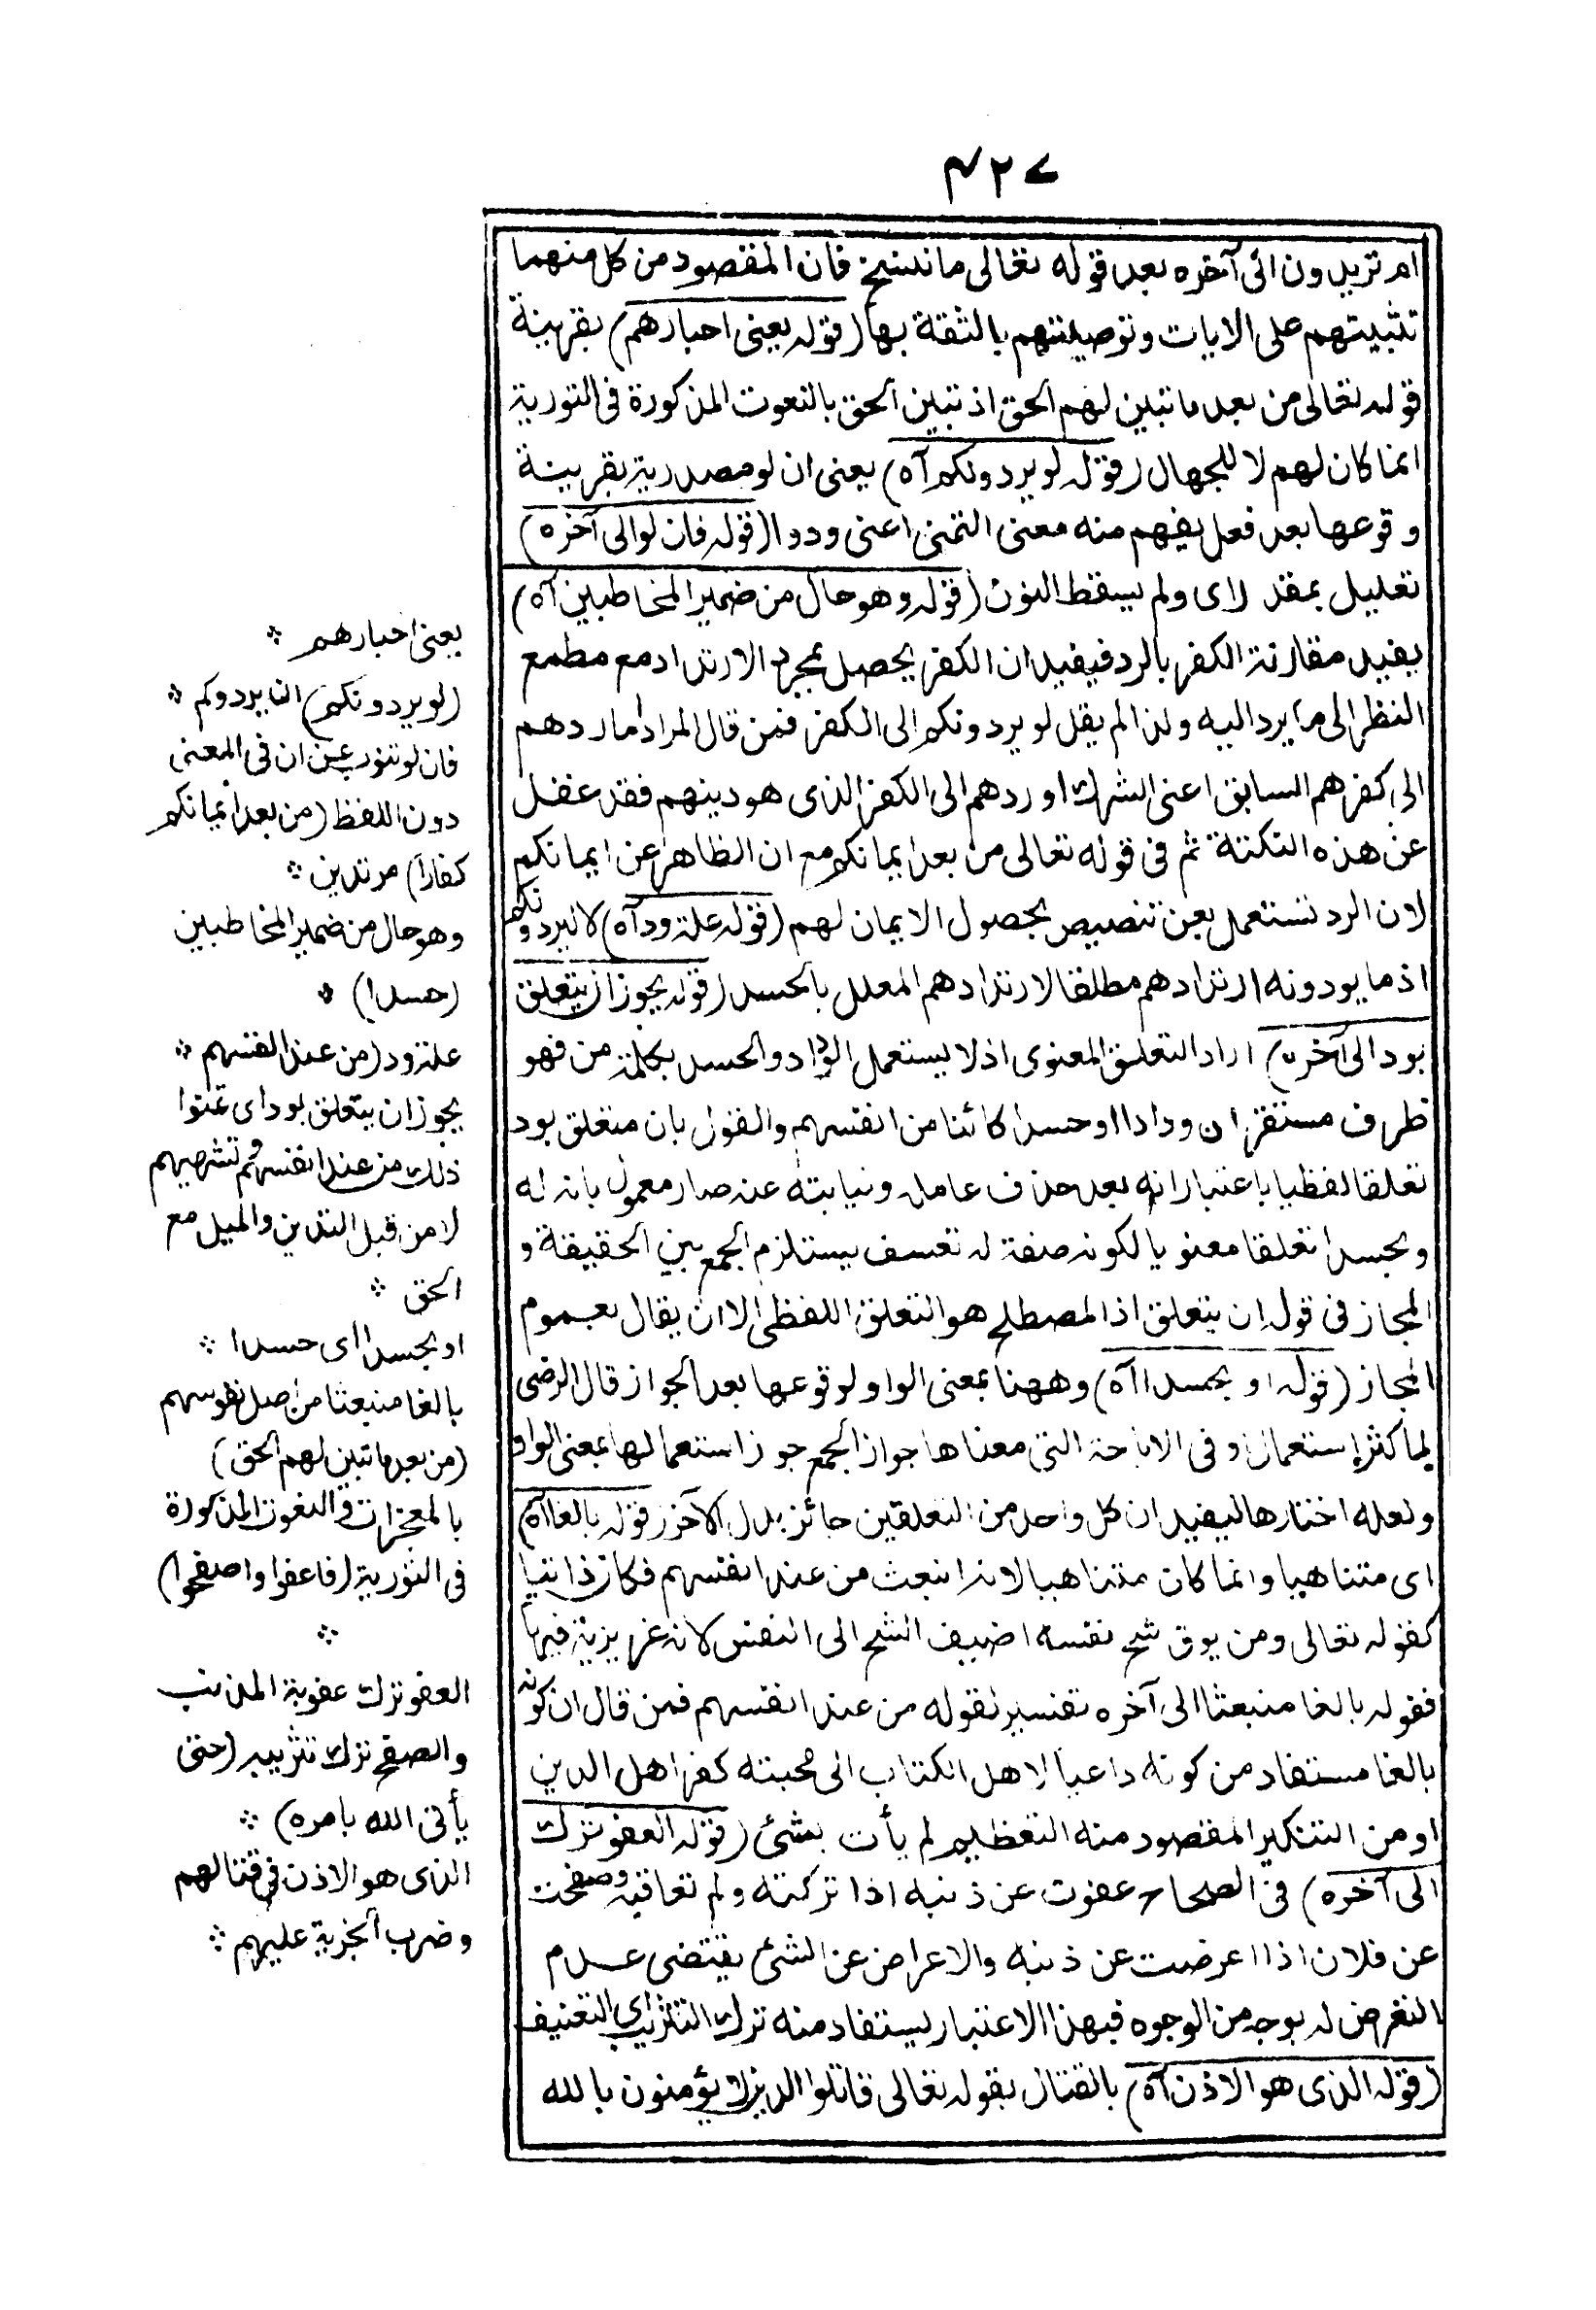 ٤٢٧
ام تريدون الى آخره بعد قوله تعالى ما ننسخ فان المقصود من كل منهما
تثبيتهم على الايات وتوصيتهم بالثقة بها (قوله يعنى احبارهم) بقرينة
قوله تعالى من بعد ما تبين لهم الحق اذ تبين الحق بالنعوت المذكورة فى التورية
انما كان لهم لا للجهال (قوله لو يردونكم آه) يعنى ان لو مصدرية بقرينة
وقوعها بعد فعل يفهم منه معنى التمنى اعنى ودوا (قوله فان لو الى آخره)
تعليل بمقدر اى ولم يسقط النون (قوله وهو حال من ضمير المخاطبين آه)
يفيد مقارنة الكفر بالرد فيفيد ان الكفر يحصل بمجرد الارتداد مع مطمع
النظر الى ما يرد اليه ولذا لم يقل لو يردونكم الى الكفر فمن قال المراد اما ردهم
الى كفرهم السابق اعنى الشرك او ردهم الى الكفر الذى هو دينهم فقد غفل
عن هذه النكتة ثم فى قوله تعالى من بعد ايمانكم مع ان الظاهر عن ايمانكم
لان الرد تستعمل بعن تنصيص بحصول الايمان لهم (قوله علة ود آه) لا ليردونكم
اذ ما يودونه ارتدادهم مطلقا لا ارتدادهم المعلل بالحسد (قوله يجوز ان يتعلق
بود الى آخره) اراد التعلق المعنوى اذ لا يستعمل الوداد والحسد بكلمة من فهو
ظرف مستقر ان ودادا او حسدا كائنا من انفسهم والقول بان متعلق بود
تعلقا لفظيا باعتبار انه بعد حذف عامله ونيابته عنه صار معمول بانه له
وبحسدا تعلقا معنويا لكونه صفة له تعسف يستلزم الجمع بين الحقيقة و
المجاز فى قوله ان يتعلق اذ المصطلح هو التعلق اللفظى الا ان يقال بعموم
المجاز (قوله او بحسدا آه) وههنا بمعنى الواو لوقوعها بعد الجواز قال الرضى
لما كثر استعمال او فى الاباحة التى معناها جواز الجمع جوز استعمالها بمعنى الواو
ولعله اختارها ليفيد ان كل واحد من التعلقين جائز بدل الآخر (قوله بالغا آه)
اى متناهيا وانما كان متناهيا لانه انبعث من عند انفسهم فكان ذاتيا
كقوله تعالى ومن يوق شح نفسه اضيف الشح الى النفس لانه غريزية فيها
فقوله بالغا منبعثا الى آخره تفسير لقوله من عند انفسهم فمن قال ان كونه
بالغا مستفاد من كونه داعيا لاهل الكتاب الى محبته كفر اهل الدين
او من التنكير المقصود منه التعظيم لم يأت بشئ (قوله العفو ترك
الى آخره) فى الصحاح عفوت عن ذنبه اذا تركته ولم تعاقبه وصفحت
عن فلان اذا اعرضت عن ذنبه والاعراض عن الشئ يقتضى عدم
التعرض له بوجه من الوجوه فبهذا الاعتبار يستفاد منه ترك التثريب اى التعنيف
(قوله الذى هو الاذن آه) بالقتال بقوله تعالى قاتلوا الذين لا يؤمنون بالله
يعنى احبارهم
(لو يردونكم) ان يردوكم
فان لو تنوب عن ان فى المعنى
دون اللفظ (من بعد ايمانكم
كفارا) مرتدين
وهو حال من ضمير المخاطبين
(حسدا)
علة ود (من عند انفسهم
يجوز ان يتعلق بود اى تمنوا
ذلك من عند انفسهم وتشهيهم
لا من قبل التدين والميل مع
الحق
او بحسدا اى حسدا
بالغا منبعثا من اصل نفوسهم
(من بعد ما تبين لهم الحق)
بالمعجزات والنعوت المذكورة
فى التورية (فاعفوا واصفحوا)
العفو ترك عقوبة المذنب
والصفح ترك تثريبه (حتى
يأتى الله بامره)
الذى هو الاذن فى قتالهم
وضرب الجزية عليهم